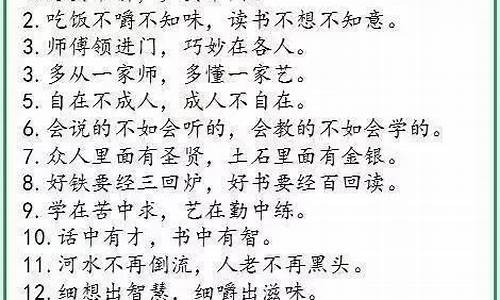 2.吃饭不嚼不知味，读书不想不知意。
3.师傅领进门，巧妙在各人。
3.多从一家师，多懂一家艺。
5.自在不成人，成人不自在。
6.会说的不如会听的，会教的不如会学的。
7.众人里面有圣贤，土石里面有金银。
8.好铁要经三回炉，好书要经百回读。
9.学在苦中求，艺在勤中练。
10.话中有才，书中有智。
11.河水不再倒流，人老不再黑头。
12.细想出智慧，细嚼出滋味。